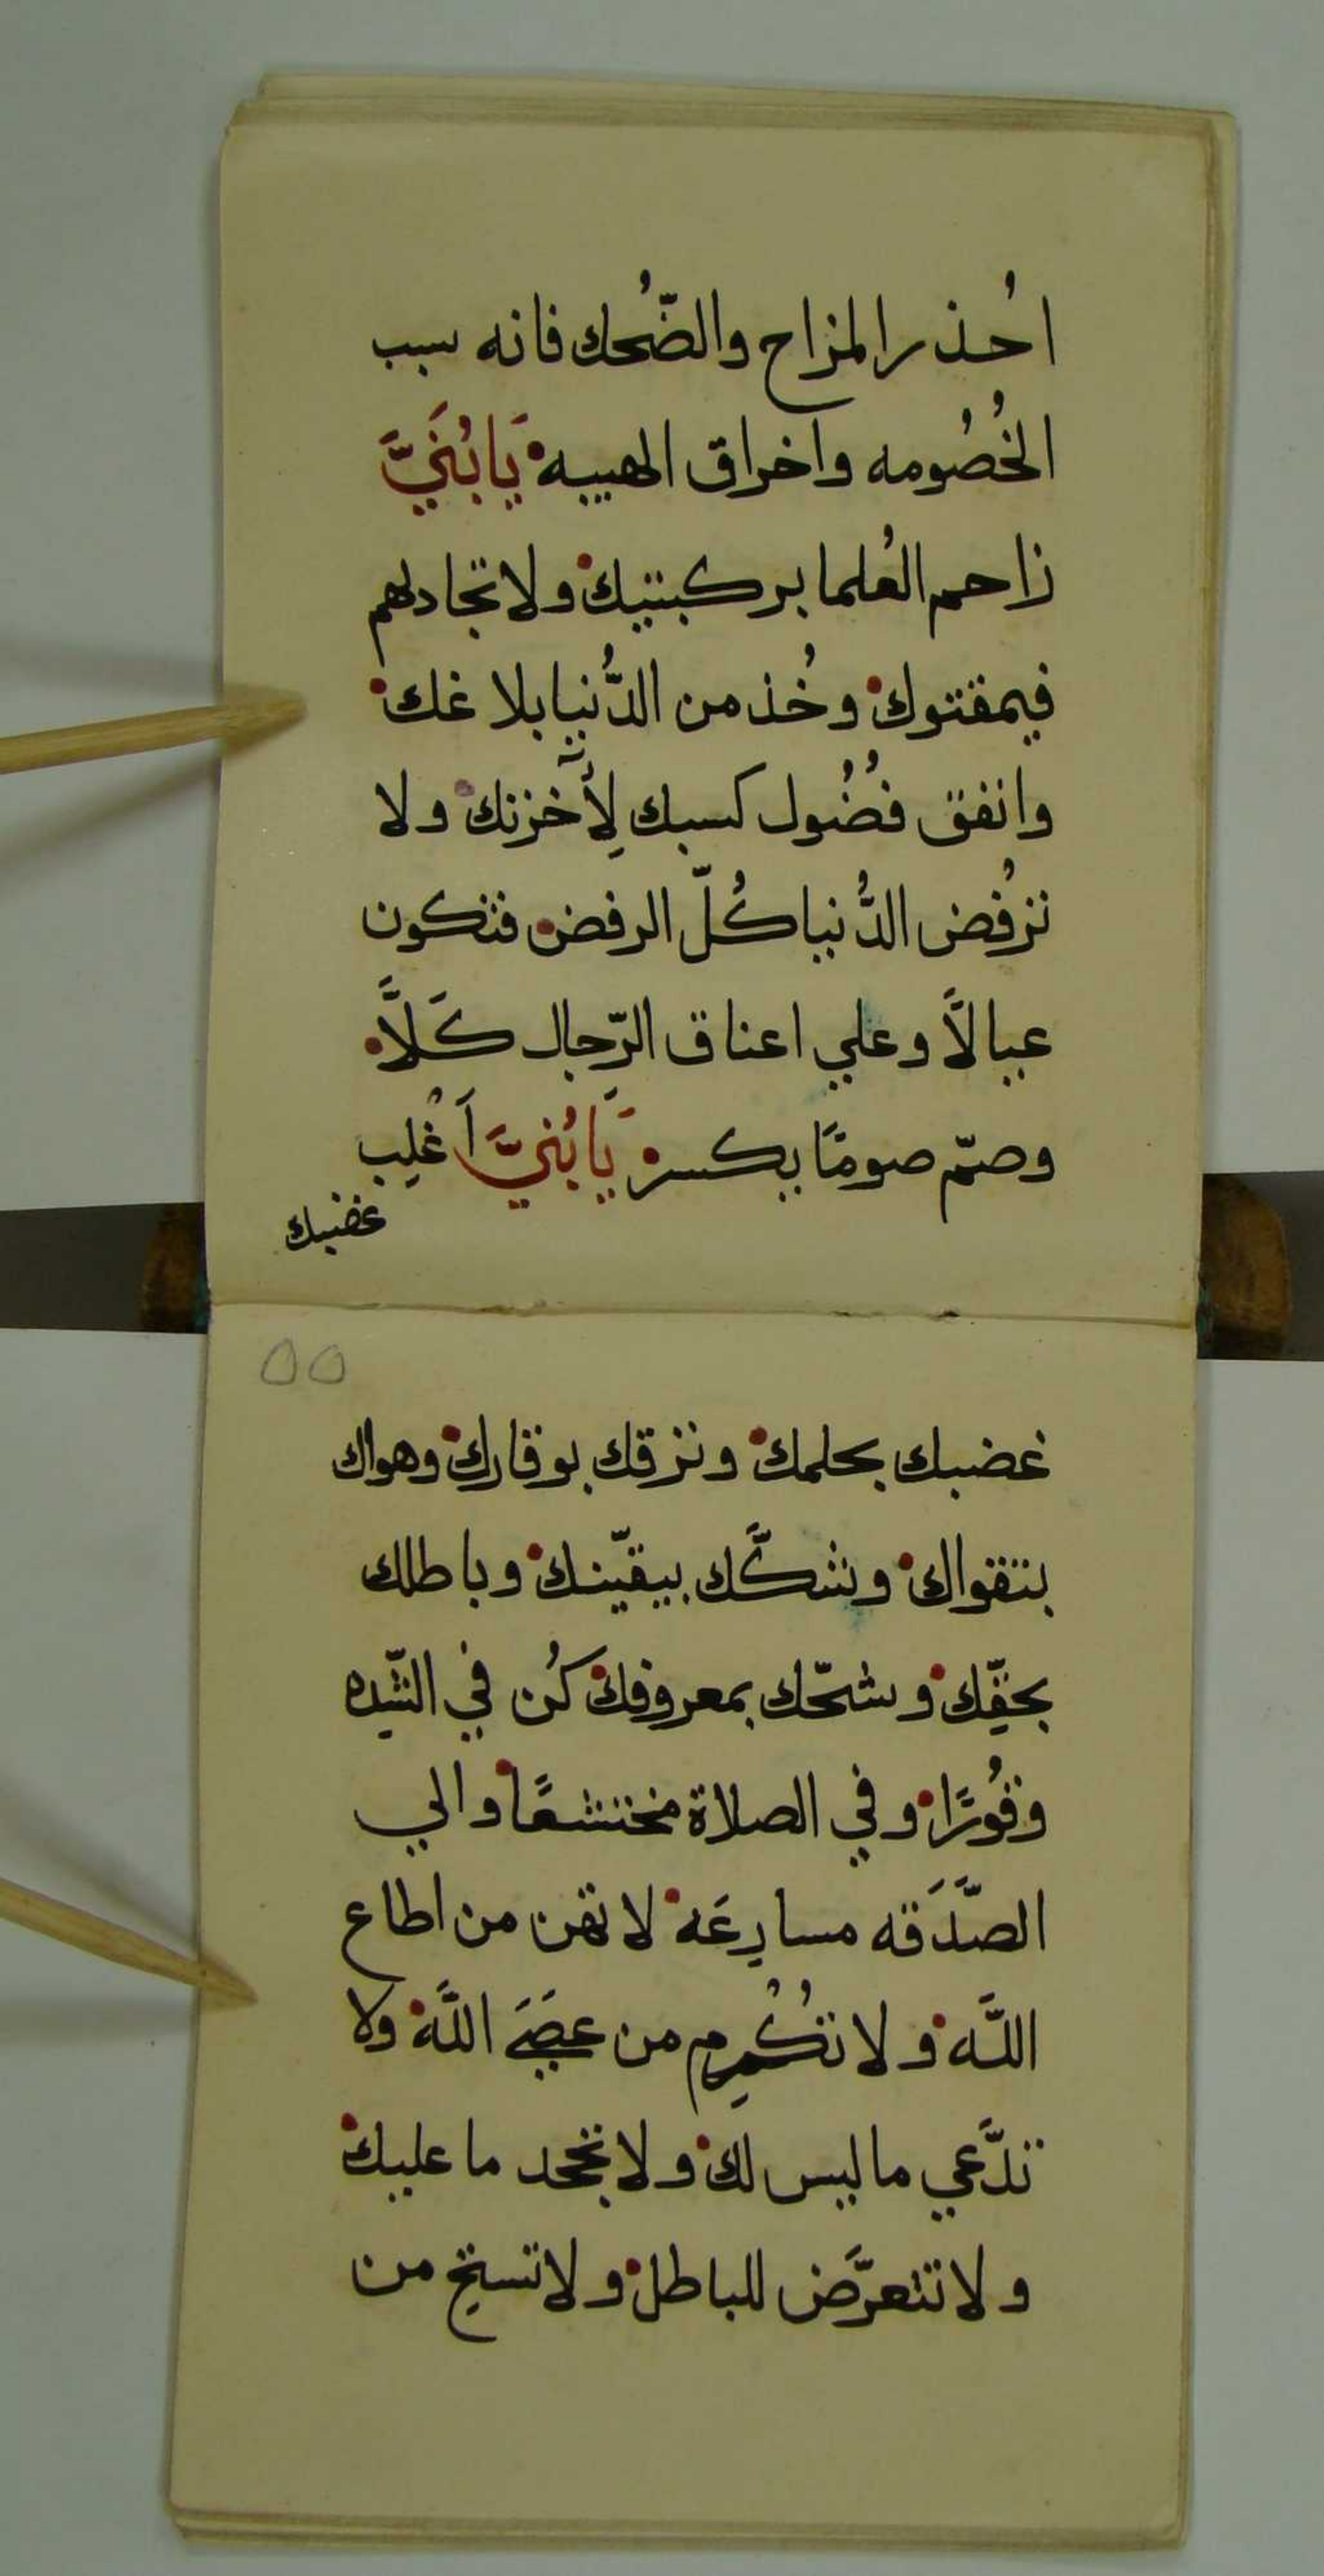 احُذر المزاح والضّحُك فانه سبب
الخُصُومه واخراق الهيبه يَا بُنَيَّ
زاحم العُلما بركبتيك ولا تجادلهم
فيمقتوك وخُذ من الدُّنيا بلاغك
وانفق فضُول كسبك لِأخرتك ولا
ترفُض الدُّنيا كُلّ الرفض فتكون
عيالاً وعلي اعناق الرّجال كَلاًّ
وصمّ صومًا يكسر يَا بُنيَّ اَغْلِب
غضبك
٥٥
غضبك بحلمك ونزقك بوقارك وهواك
بتقواك وشكَّك بيقّينك وباطلك
بحقِّك وشحّك بمعروفك كُن في الشّده
وقُورًا وفي الصلاة متخشعًا والي
الصَّدَقه مسارِعَه لا تهن من اطاع
اللَّه ولا تكُرِم من عصَيَ اللَّه ولا
تدَّعي ما ليس لك ولا تجحد ما عليك
ولا تتعرَّض للباطل ولا تستحِ من